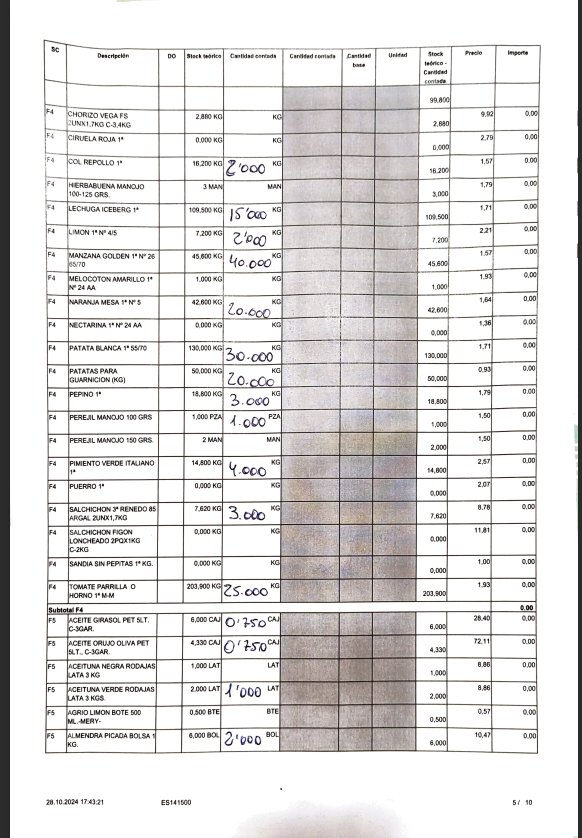 SC Descripción DO Stock teórico Cantidad contada Cantidad contada Cantidad base Unidad Stock teórico - Cantidad contada Precio Importe
99,800
F4 CHORIZO VEGA FS 2UNX1,7KG C-3,4KG 2,880 KG KG 2,880 9,92 0,00
F4 CIRUELA ROJA 1ª 0,000 KG KG 0,000 2,79 0,00
F4 COL REPOLLO 1ª 16,200 KG 2'000 KG 16,200 1,57 0,00
F4 HIERBABUENA MANOJO 100-125 GRS. 3 MAN MAN 3,000 1,79 0,00
F4 LECHUGA ICEBERG 1ª 109,500 KG 15'000 KG 109,500 1,71 0,00
F4 LIMON 1ª Nº 4/5 7,200 KG 2'000 KG 7,200 2,21 0,00
F4 MANZANA GOLDEN 1ª Nº 26 65/70 45,600 KG 40.000 KG 45,600 1,57 0,00
F4 MELOCOTON AMARILLO 1ª Nº 24 AA 1,000 KG KG 1,000 1,93 0,00
F4 NARANJA MESA 1ª Nº 5 42,600 KG 20.000 KG 42,600 1,64 0,00
F4 NECTARINA 1ª Nº 24 AA 0,000 KG KG 0,000 1,36 0,00
F4 PATATA BLANCA 1ª 55/70 130,000 KG 30.000 KG 130,000 1,71 0,00
F4 PATATAS PARA GUARNICION (KG) 50,000 KG 20.000 KG 50,000 0,93 0,00
F4 PEPINO 1ª 18,800 KG 3.000 KG 18,800 1,79 0,00
F4 PEREJIL MANOJO 100 GRS 1,000 PZA 1.000 PZA 1,000 1,50 0,00
F4 PEREJIL MANOJO 150 GRS. 2 MAN MAN 2,000 1,50 0,00
F4 PIMIENTO VERDE ITALIANO 1ª 14,800 KG 4.000 KG 14,800 2,57 0,00
F4 PUERRO 1ª 0,000 KG KG 0,000 2,07 0,00
F4 SALCHICHON 3ª RENEDO 85 ARGAL 2UNX1,7KG 7,620 KG 3.000 KG 7,620 8,78 0,00
F4 SALCHICHON FIGON LONCHEADO 2PQX1KG C-2KG 0,000 KG KG 0,000 11,81 0,00
F4 SANDIA SIN PEPITAS 1ª KG. 0,000 KG KG 0,000 1,00 0,00
F4 TOMATE PARRILLA O HORNO 1ª M-M 203,900 KG 25.000 KG 203,900 1,93 0,00
Subtotal F4 0,00
F5 ACEITE GIRASOL PET 5LT. C-3GAR. 6,000 CAJ 0'750 CAJ 6,000 28,40 0,00
F5 ACEITE ORUJO OLIVA PET 5LT., C-3GAR. 4,330 CAJ 0'750 CAJ 4,330 72,11 0,00
F5 ACEITUNA NEGRA RODAJAS LATA 3 KG 1,000 LAT LAT 1,000 8,86 0,00
F5 ACEITUNA VERDE RODAJAS LATA 3 KGS. 2,000 LAT 1'000 LAT 2,000 8,86 0,00
F5 AGRIO LIMON BOTE 500 ML.-MERY- 0,500 BTE BTE 0,500 0,57 0,00
F5 ALMENDRA PICADA BOLSA 1 KG. 6,000 BOL 2'000 BOL 6,000 10,47 0,00
28.10.2024 17:43:21 ES141500 5 / 10